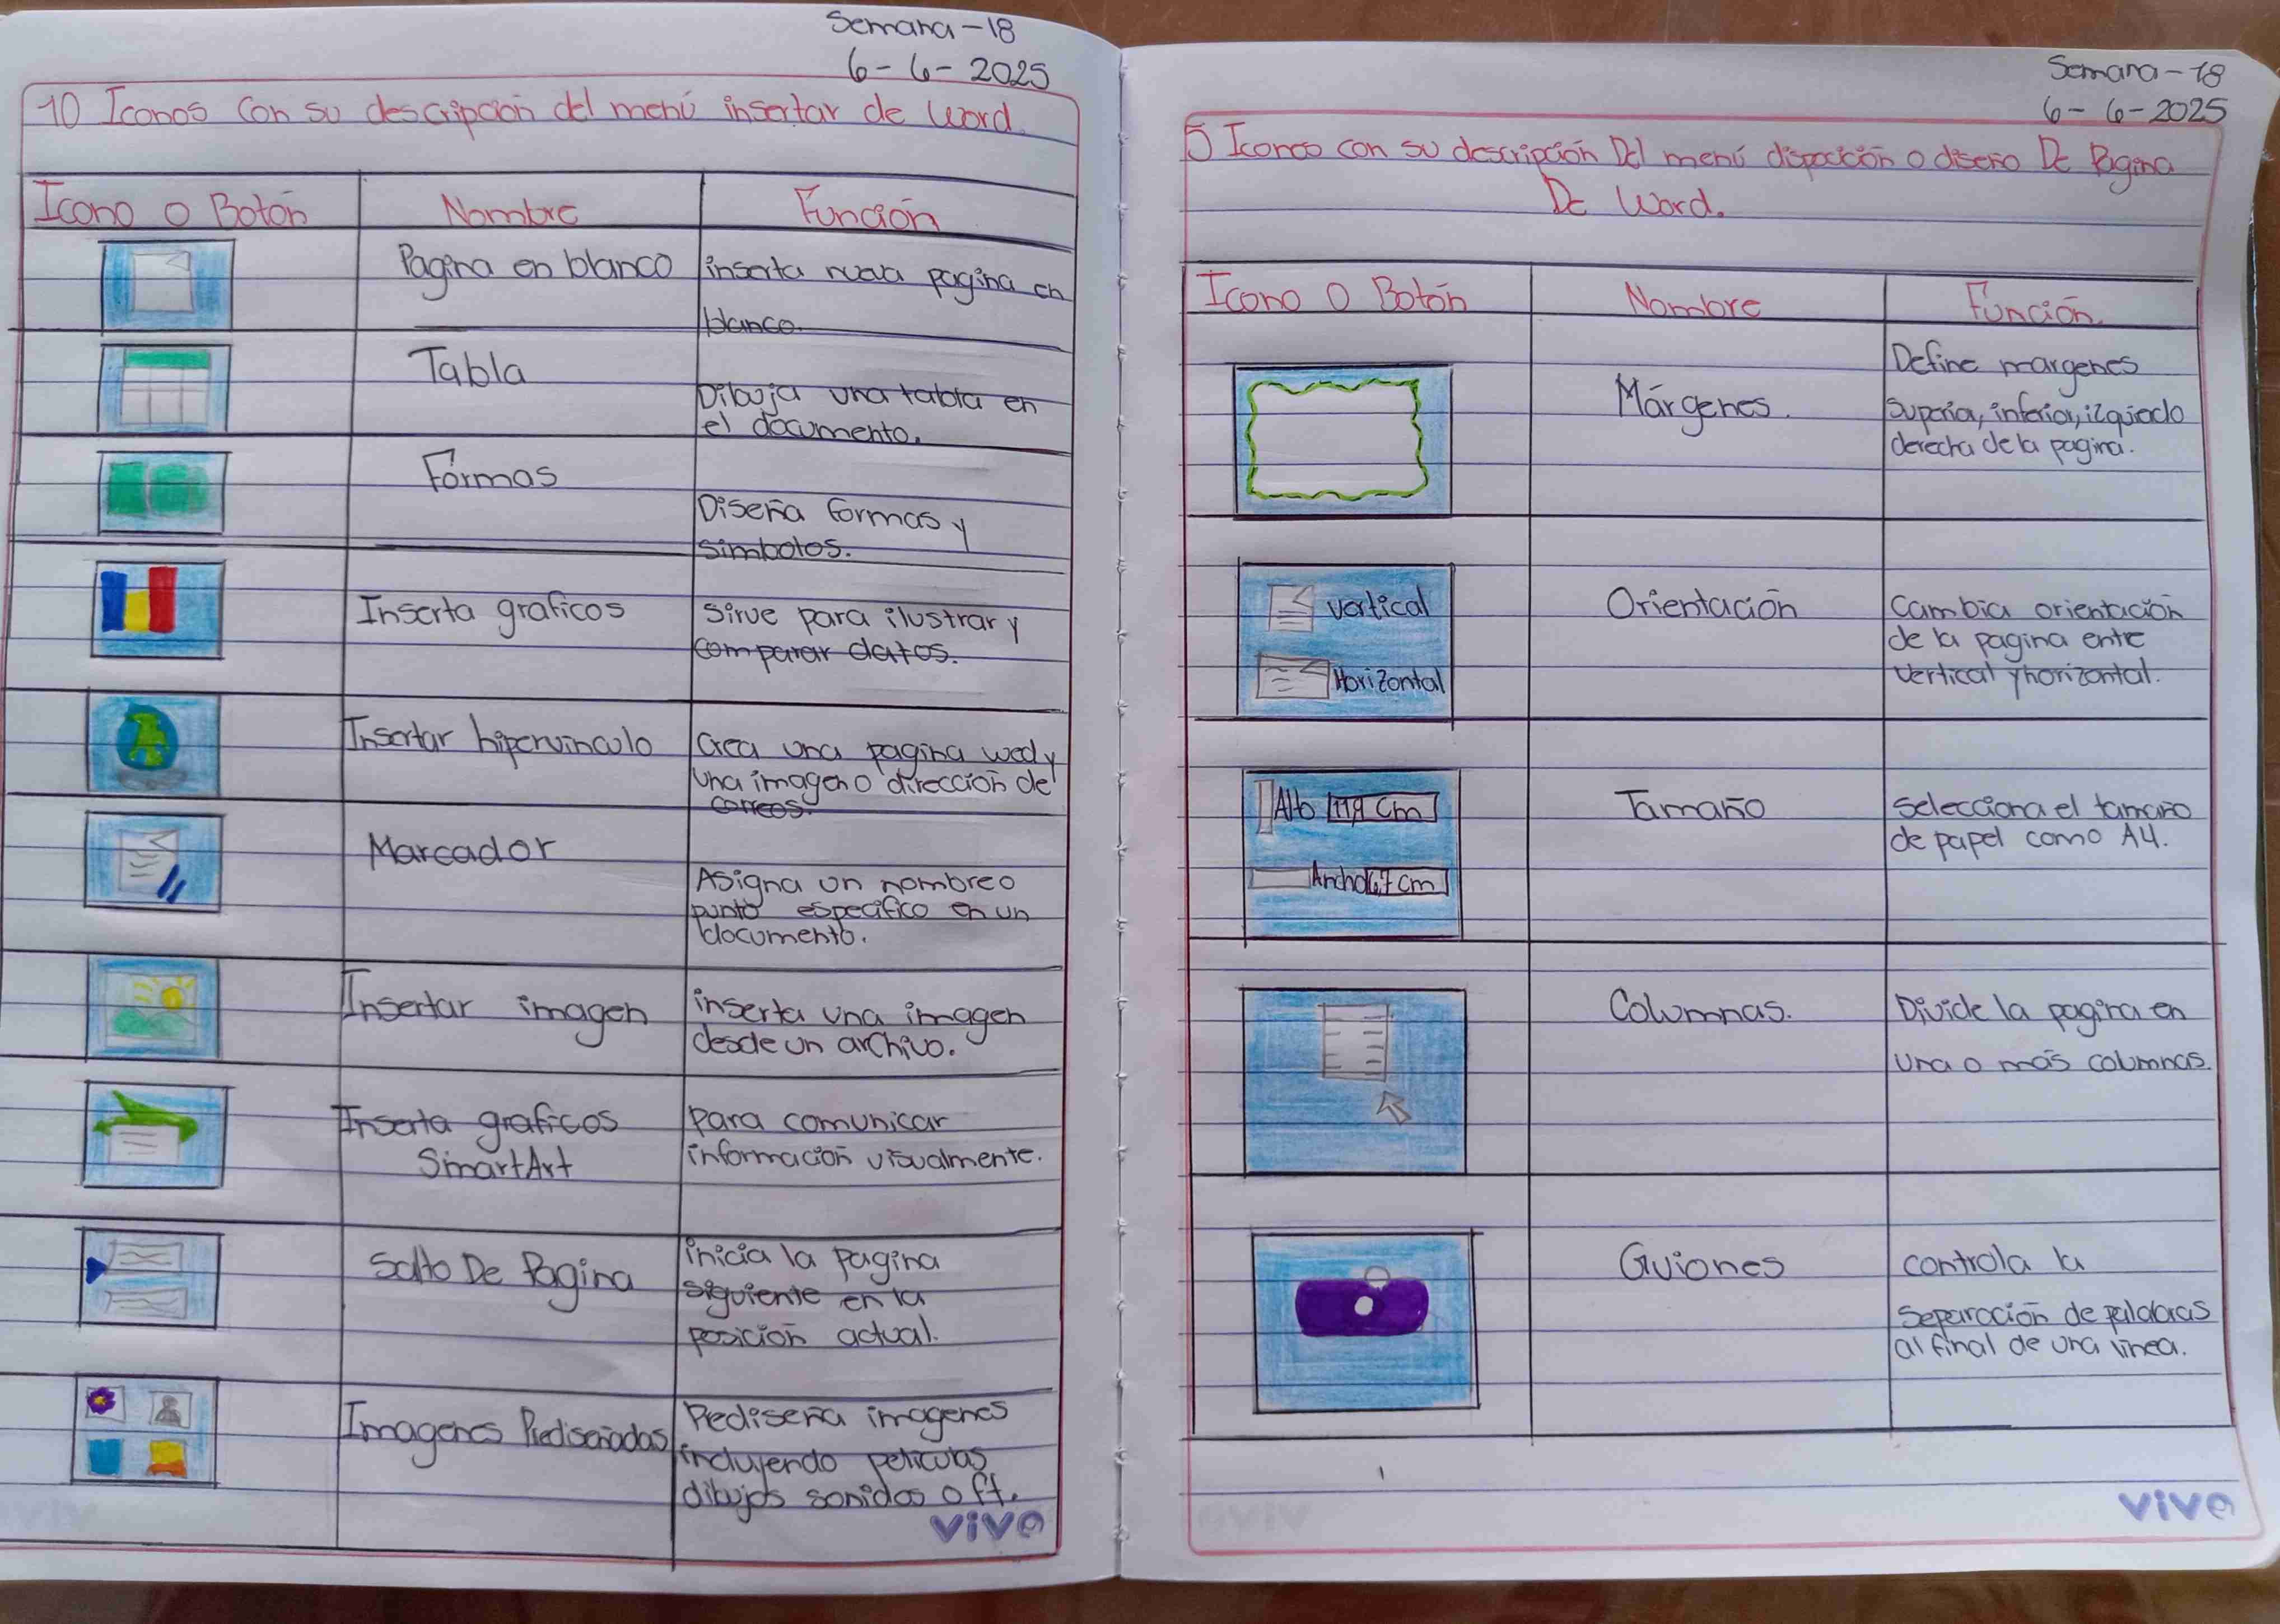 Semana-18
6-6-2025
10 Iconos con su descripción del menú insertar de Word.
Icono o Botón Nombre Función
Pagina en blanco inserta nueva pagina en
blanco.
Tabla
Dibuja una tabla en
el documento.
Formas
Diseña formas y
simbolos.
Inserta graficos sirve para ilustrar y
comparar datos.
Insertar hipervinculo crea una pagina wed y
una imagen o dirección de
correos.
Marcador
Asigna un nombre o
punto especifico en un
documento.
Insertar imagen inserta una imagen
desde un archivo.
Inserta graficos para comunicar
SmartArt información visualmente.
Salto De Pagina inicia la pagina
siguiente en la
posición actual.
Imagenes Prediseñadas Prediseña imagenes
incluyendo peliculas
dibujos sonidos o ft.
vivo
Semana-18
6-6-2025
5 Iconos con su descripción Del menú disposición o diseño De Pagina
De Word.
Icono O Botón Nombre Función.
Define margenes
Márgenes. superior, inferior, izquierdo
derecha de la pagina.
vertical Orientación Cambia orientación
de la pagina ente
Horizontal vertical y horizontal.
Alto cm Tamaño selecciona el tamaño
de papel como A4.
Ancho cm
Columnas. Divide la pagina en
una o más columnas.
Guiones controla la
separación de palabras
al final de una linea.
vivo